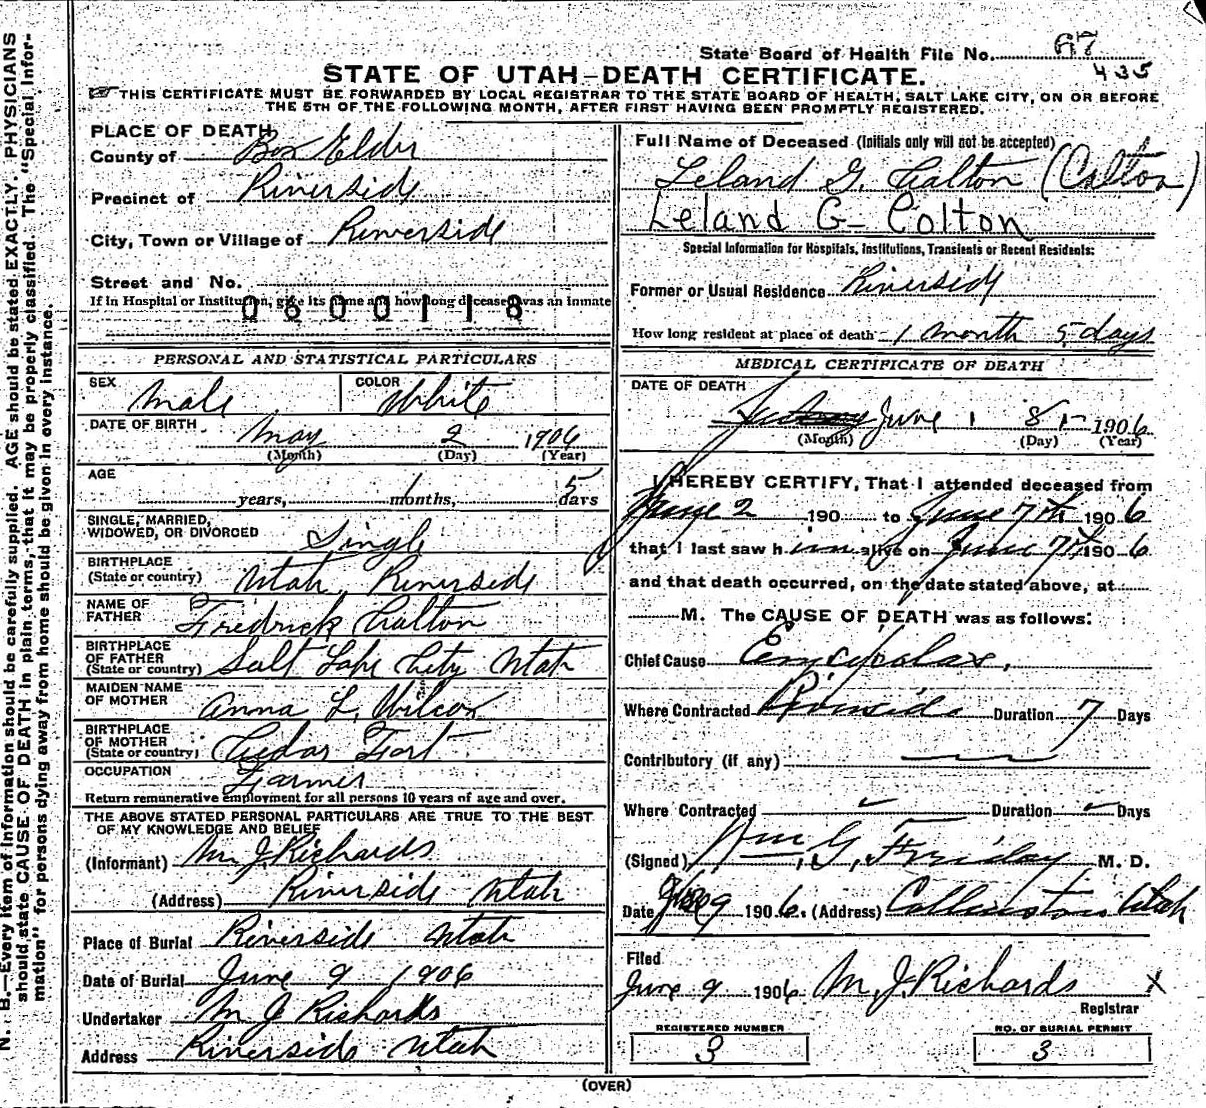 State Board of Health File No. 67
435
STATE OF UTAH—DEATH CERTIFICATE.
THIS CERTIFICATE MUST BE FORWARDED BY LOCAL REGISTRAR TO THE STATE BOARD OF HEALTH, SALT LAKE CITY, ON OR BEFORE
THE 5TH OF THE FOLLOWING MONTH, AFTER FIRST HAVING BEEN PROMPTLY REGISTERED.
N. B.—Every item of information should be carefully supplied. AGE should be stated EXACTLY. PHYSICIANS
should state CAUSE OF DEATH in plain terms, that it may be properly classified. The "Special Infor-
mation" for persons dying away from home should be given in every instance.
PLACE OF DEATH
County of Box Elder
Precinct of Riverside
City, Town or Village of Riverside
Street and No.
If in Hospital or Institution, give its name and how long deceased was an inmate
0600118
PERSONAL AND STATISTICAL PARTICULARS
SEX Male COLOR White
DATE OF BIRTH May 2 1906
(Month) (Day) (Year)
AGE
years, 1 months, 5 days
SINGLE, MARRIED,
WIDOWED, OR DIVORCED Single
BIRTHPLACE
(State or country) Utah Riverside
NAME OF
FATHER Fredrick Calton
BIRTHPLACE
OF FATHER
(State or country) Salt Lake City Utah
MAIDEN NAME
OF MOTHER Anna L. Wilcox
BIRTHPLACE
OF MOTHER
(State or country) Cedar Fort
OCCUPATION Farmer
Return remunerative employment for all persons 10 years of age and over.
THE ABOVE STATED PERSONAL PARTICULARS ARE TRUE TO THE BEST
OF MY KNOWLEDGE AND BELIEF
(Informant) M J Richards
(Address) Riverside Utah
Place of Burial Riverside Utah
Date of Burial June 9 1906
Undertaker M J Richards
Address Riverside Utah
Full Name of Deceased (Initials only will not be accepted)
Leland G. Calton (Colton)
Leland G- Colton
Special Information for Hospitals, Institutions, Transients or Recent Residents:
Former or Usual Residence Riverside
How long resident at place of death 1 month 5 days
MEDICAL CERTIFICATE OF DEATH
DATE OF DEATH
June 8 1906
(Month) (Day) (Year)
I HEREBY CERTIFY, That I attended deceased from
June 2 190 to June 7th 1906
that I last saw him alive on June 7th 1906
and that death occurred, on the date stated above, at
M. The CAUSE OF DEATH was as follows:
Chief Cause
Where Contracted Riverside Duration 7 Days
Contributory (if any)
Where Contracted Duration Days
(Signed) Wm. G. Friday M. D.
Date 9 1906. (Address) Collinston Utah
Filed
June 9 1906 M. J. Richards X
Registrar
REGISTERED NUMBER NO. OF BURIAL PERMIT
3 3
(OVER)